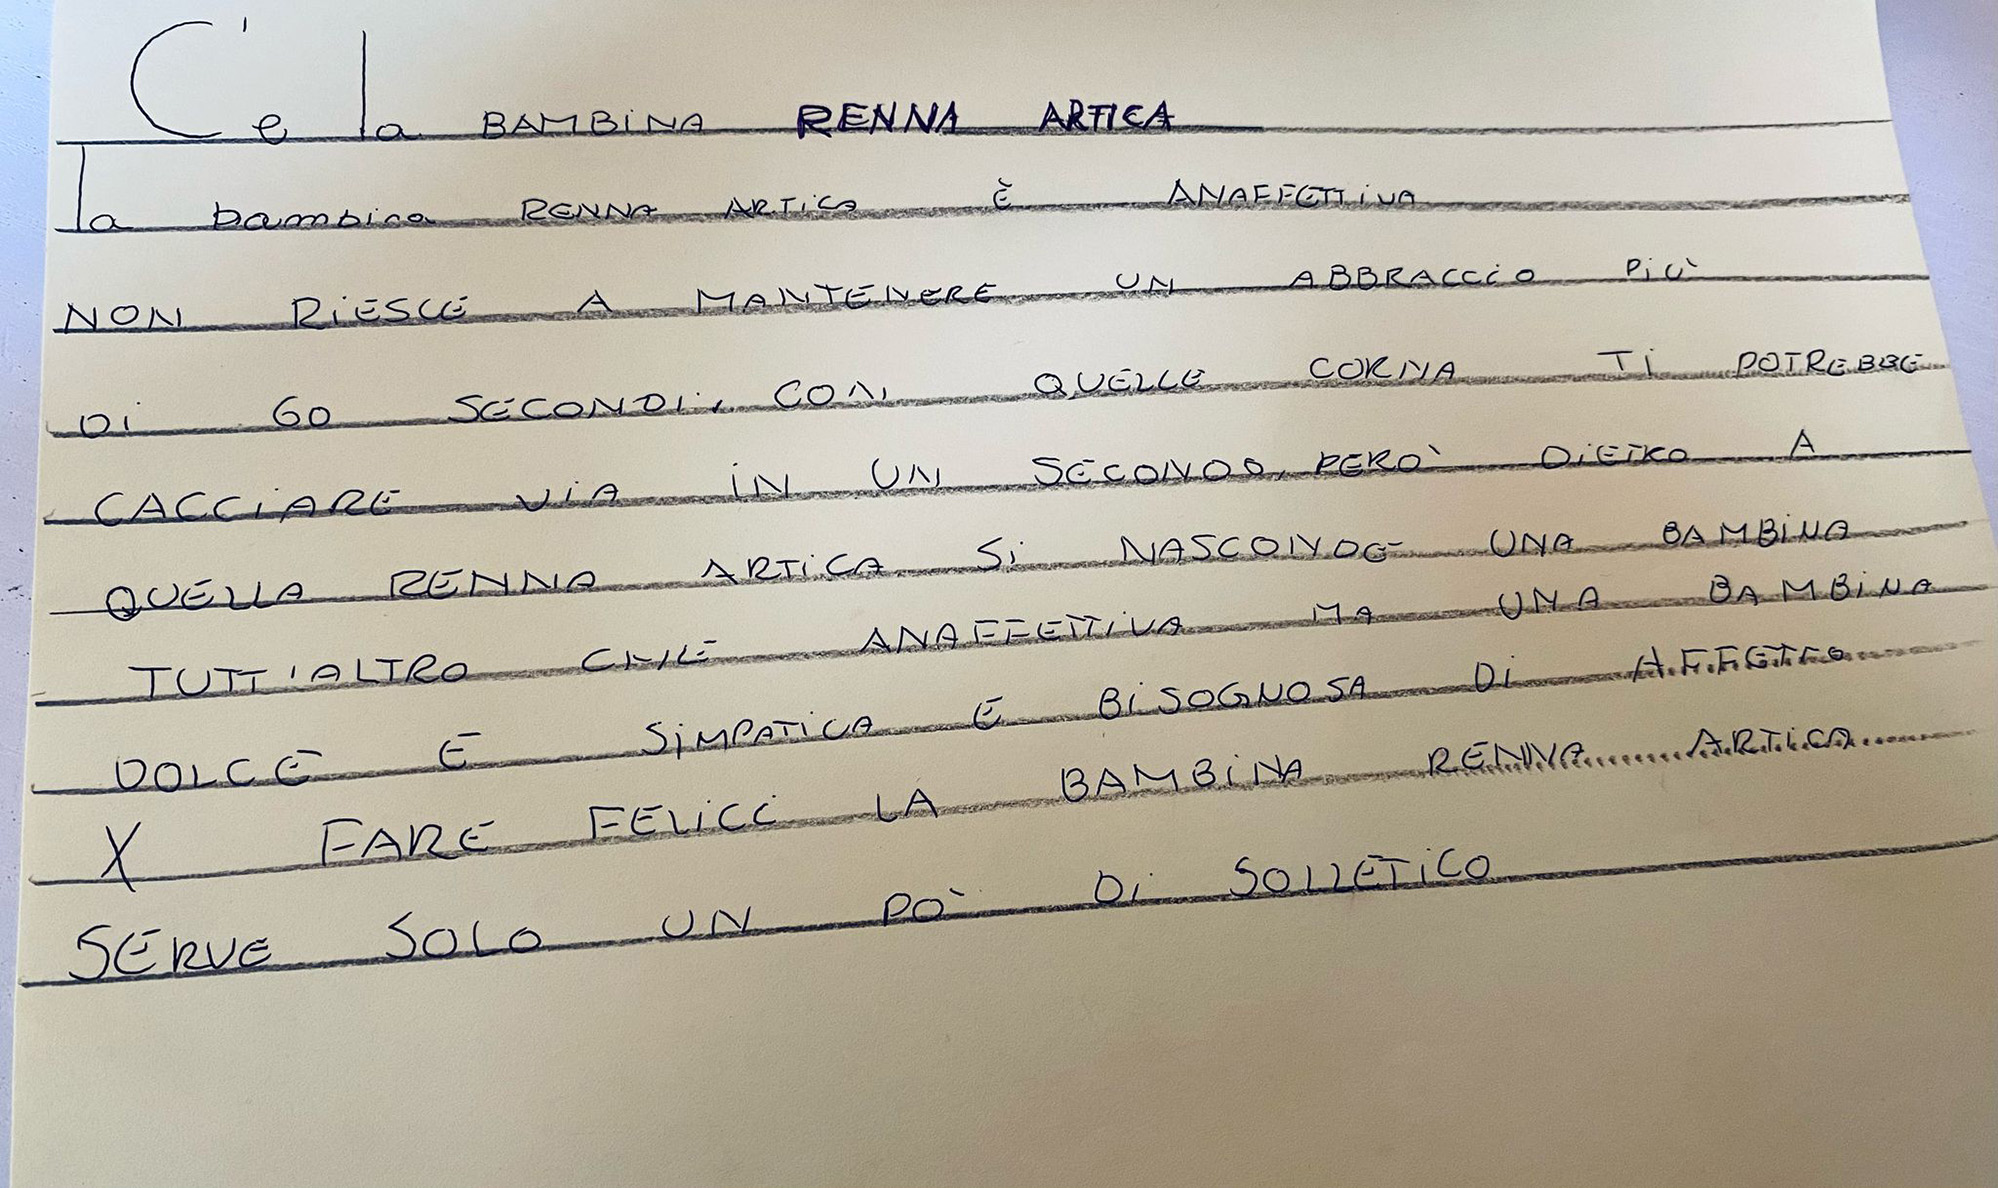 C'e la BAMBiNA RENNA ARTICA
la bambina RENNA ARTiCA È ANAFFETTiVA
NON RiESCE A MANTENERE UN ABBRACCiO PiÙ
Di 60 SECONDi, CON QUELLE CORNA Ti POTREBBE
CACCiARE ViA iN UN SECONDO, PERÒ DiETRO A
QUELLA RENNA ARTiCA Si NASCONDE UNA BAMBiNA
TUTT'ALTRO CHE ANAFFETTiVA MA UNA BAMBiNA
DOLCE E SiMPATiCA E BiSOGNOSA Di AFFETTO
X FARE FELiCE LA BAMBiNA RENNA ARTiCA
SERVE SOLO UN PÒ Di SOLLETiCO